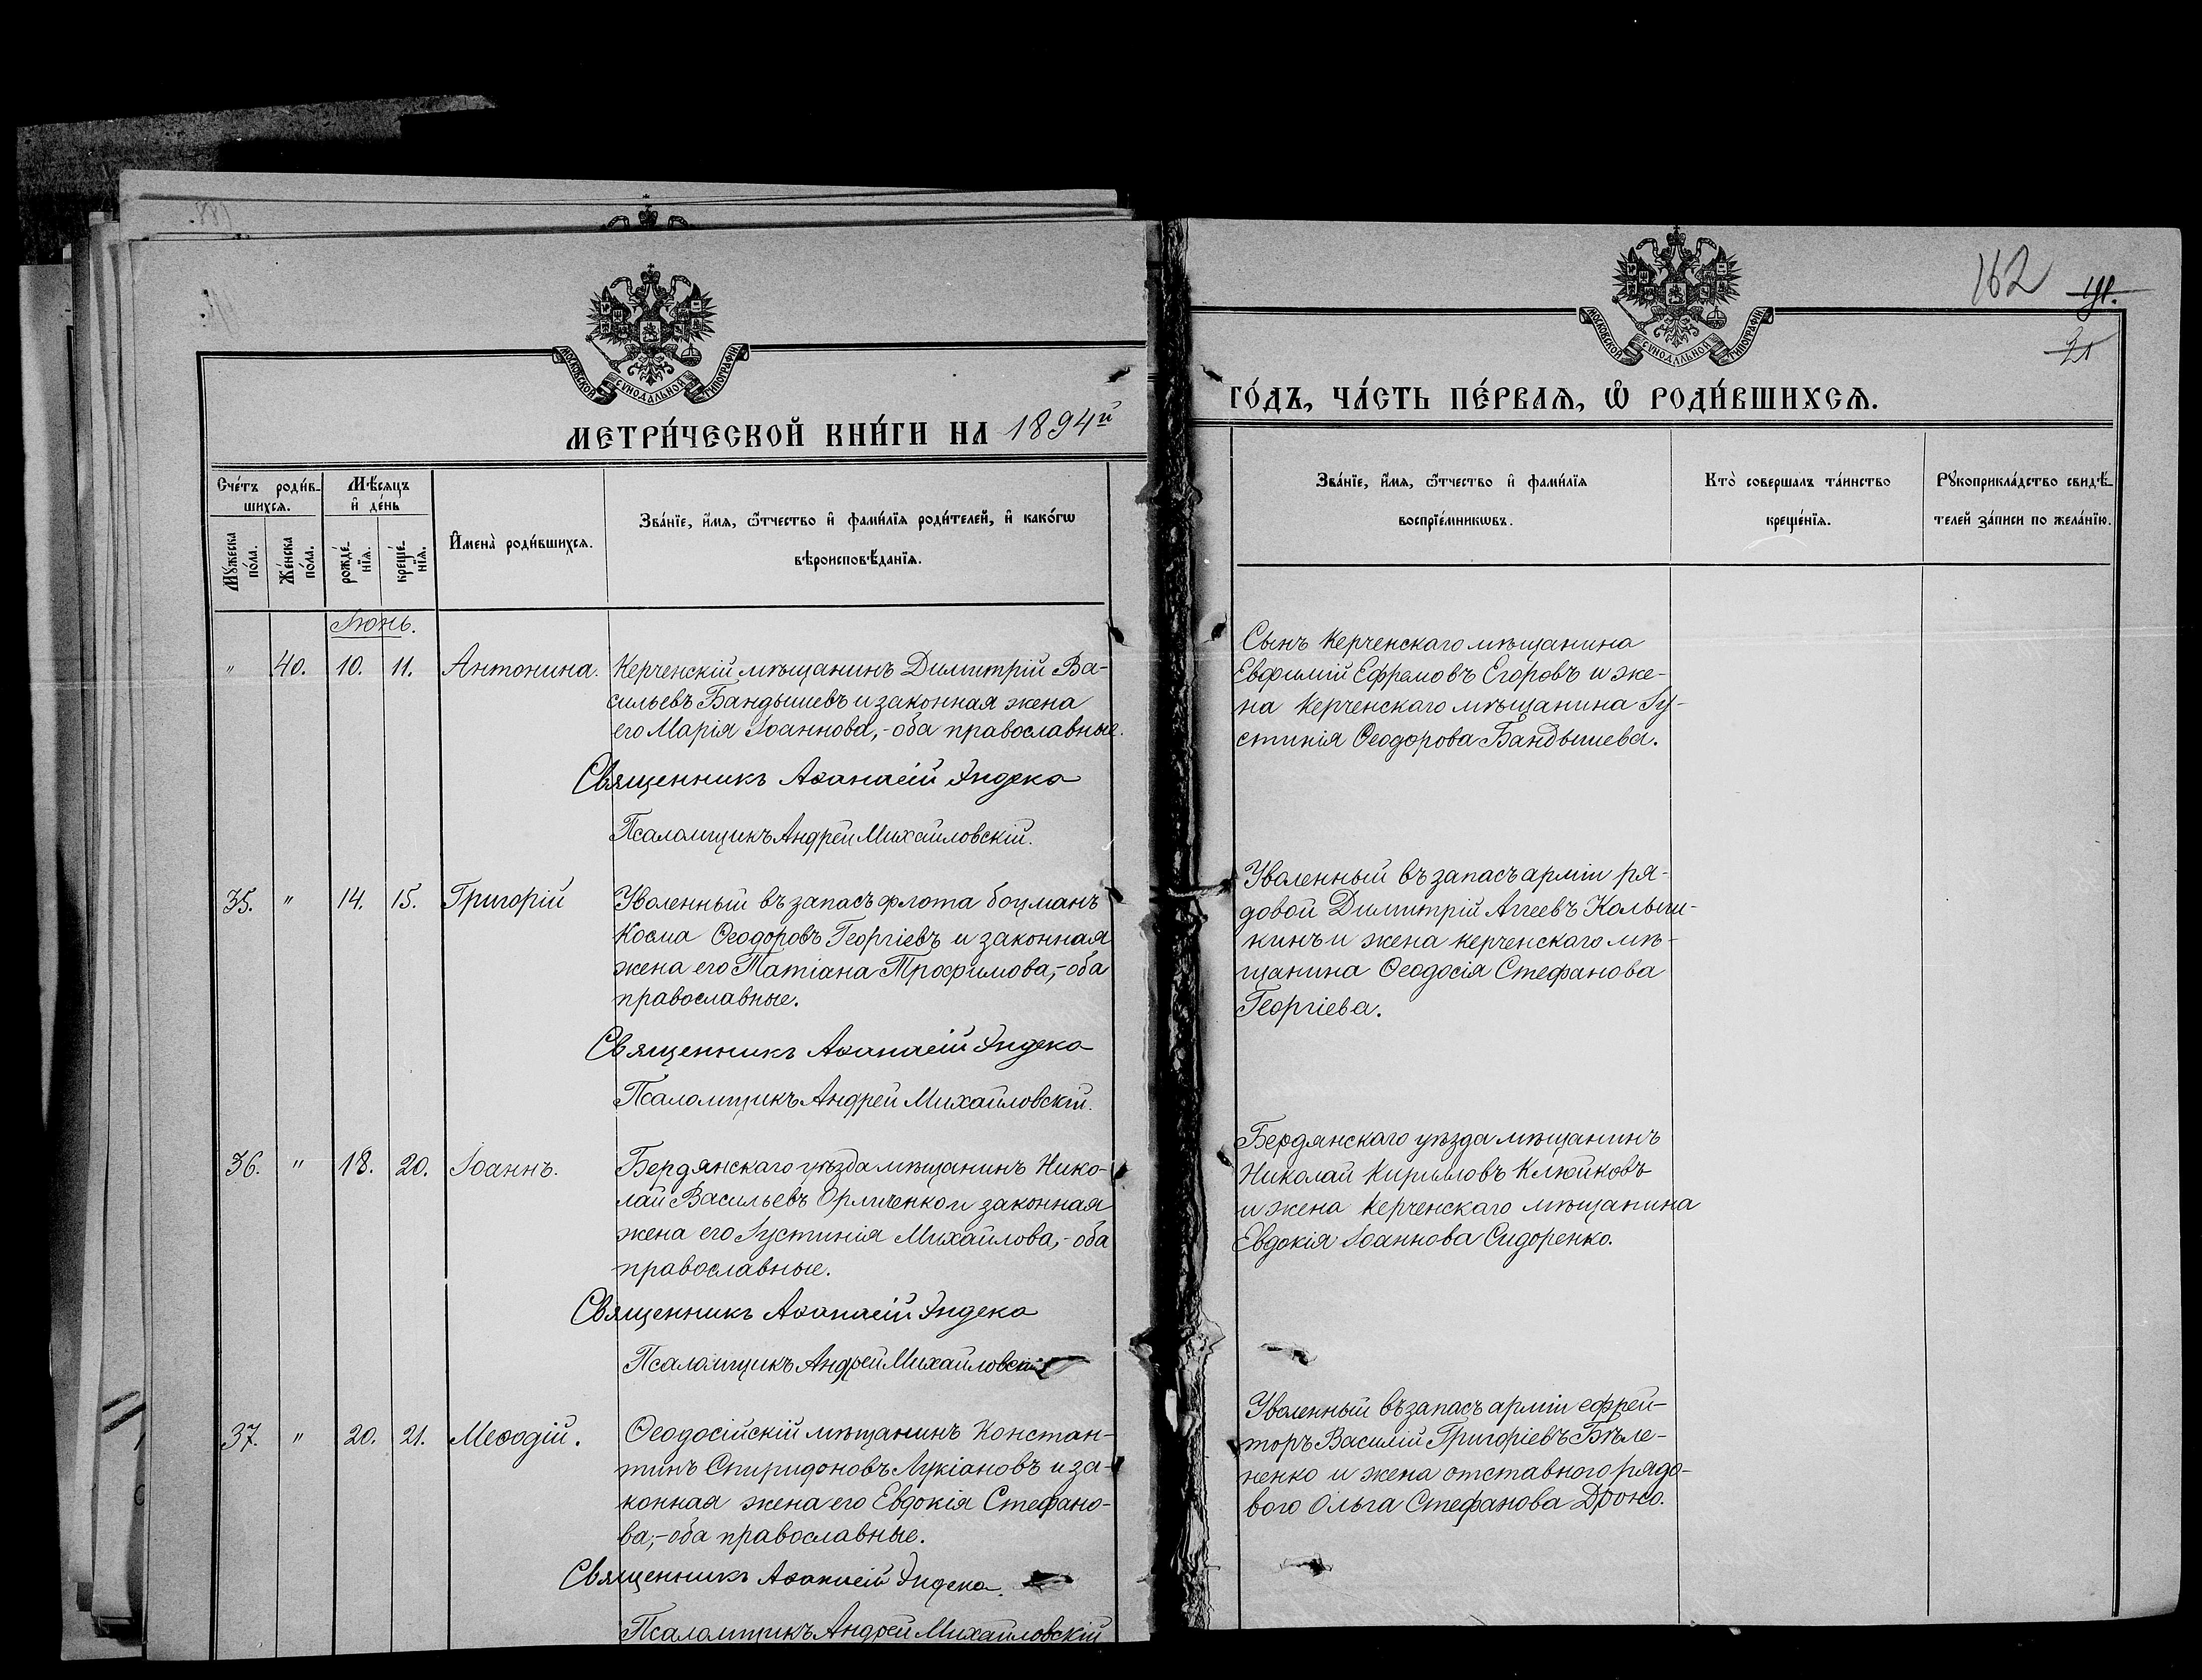 МОСКОВСКОЙ СѴНОДАЛЬНОЙ ТИПОГРАФІИ
МЕТРИ́ЧЕСКОЙ КНИ́ГИ НА 1894й
Сче́тъ роди́в-
шихсѧ.
Мꙋ́жеска
по́ла.
Же́нска
по́ла.
Мѣ́сѧцъ
и҆ де́нь
рожде́-
нїѧ.
креще́-
нїѧ.
И҆мена̀ роди́вшихсѧ.
Зва́нїе, и҆́мѧ, ѻ҆́тчество и҆ фами́лїѧ роди́телей, и҆ како́гѡ
вѣроисповѣ́данїѧ.
Іюнь.
" 40. 10. 11. Антонина. Керченскій мѣщанинъ Димитрій Ва-
сильевъ Бандышевъ и законная жена
его Марія Іоаннова,-оба православные.
Священникъ Аѳанасій Индека
Псаломщикъ Андрей Михайловскій.
35. " 14. 15. Григорій Уволенный въ запасъ флота боцманъ
Косма Ѳеодоровъ Георгіевъ и законная
жена его Татіана Трофимова,-оба
православные.
Священникъ Аѳанасій Индека
Псаломщикъ Андрей Михайловскій.
36. " 18. 20. Іоаннъ. Бердянскаго уѣзда мѣщанинъ Нико-
лай Васильевъ Орличенко и законная
жена его Іустинія Михайлова,-оба
православные.
Священникъ Аѳанасій Индека
Псаломщикъ Андрей Михайловскій
37. " 20. 21. Меѳодій. Ѳеодосійскій мѣщанинъ Констан-
тинъ Спиридоновъ Лукіановъ и за-
конная жена его Евдокія Стефано-
ва,-оба православные.
Священникъ Аѳанасій Индека.
Псаломщикъ Андрей Михайловскій
162
21
МОСКОВСКОЙ СѴНОДАЛЬНОЙ ТИПОГРАФІИ
ГО́ДЪ, ЧА́СТЬ ПЕ́РВАѦ, Ѡ҆ РОДИ́ВШИХСѦ.
Зва́нїе, и҆́мѧ, ѻ҆́тчество и҆ фами́лїѧ
воспрїе́мникѡвъ.
Кто̀ соверша́лъ та́инство
креще́нїѧ.
Рꙋкоприкла́дство свидѣ́-
телей за́писи по жела́нїю.
Сынъ Керченскаго мѣщанина
Евфимій Ефремовъ Егоровъ и же-
на Керченскаго мѣщанина Іу-
стинія Ѳеодорова Бандышева.
Уволенный въ запасъ арміи ря-
довой Димитрій Аггеевъ Колыш-
кинъ и жена керченскаго мѣ-
щанина Ѳеодосія Стефанова
Георгіева.
Бердянскаго уѣзда мѣщанинъ
Николай Кирилловъ Клюйковъ
и жена керченскаго мѣщанина
Евдокія Іоаннова Сидоренко.
Уволенный въ запасъ арміи ефрей-
торъ Василій Григоріевъ Бѣле-
ненко и жена отставного рядо-
вого Ольга Стефанова Дроно.